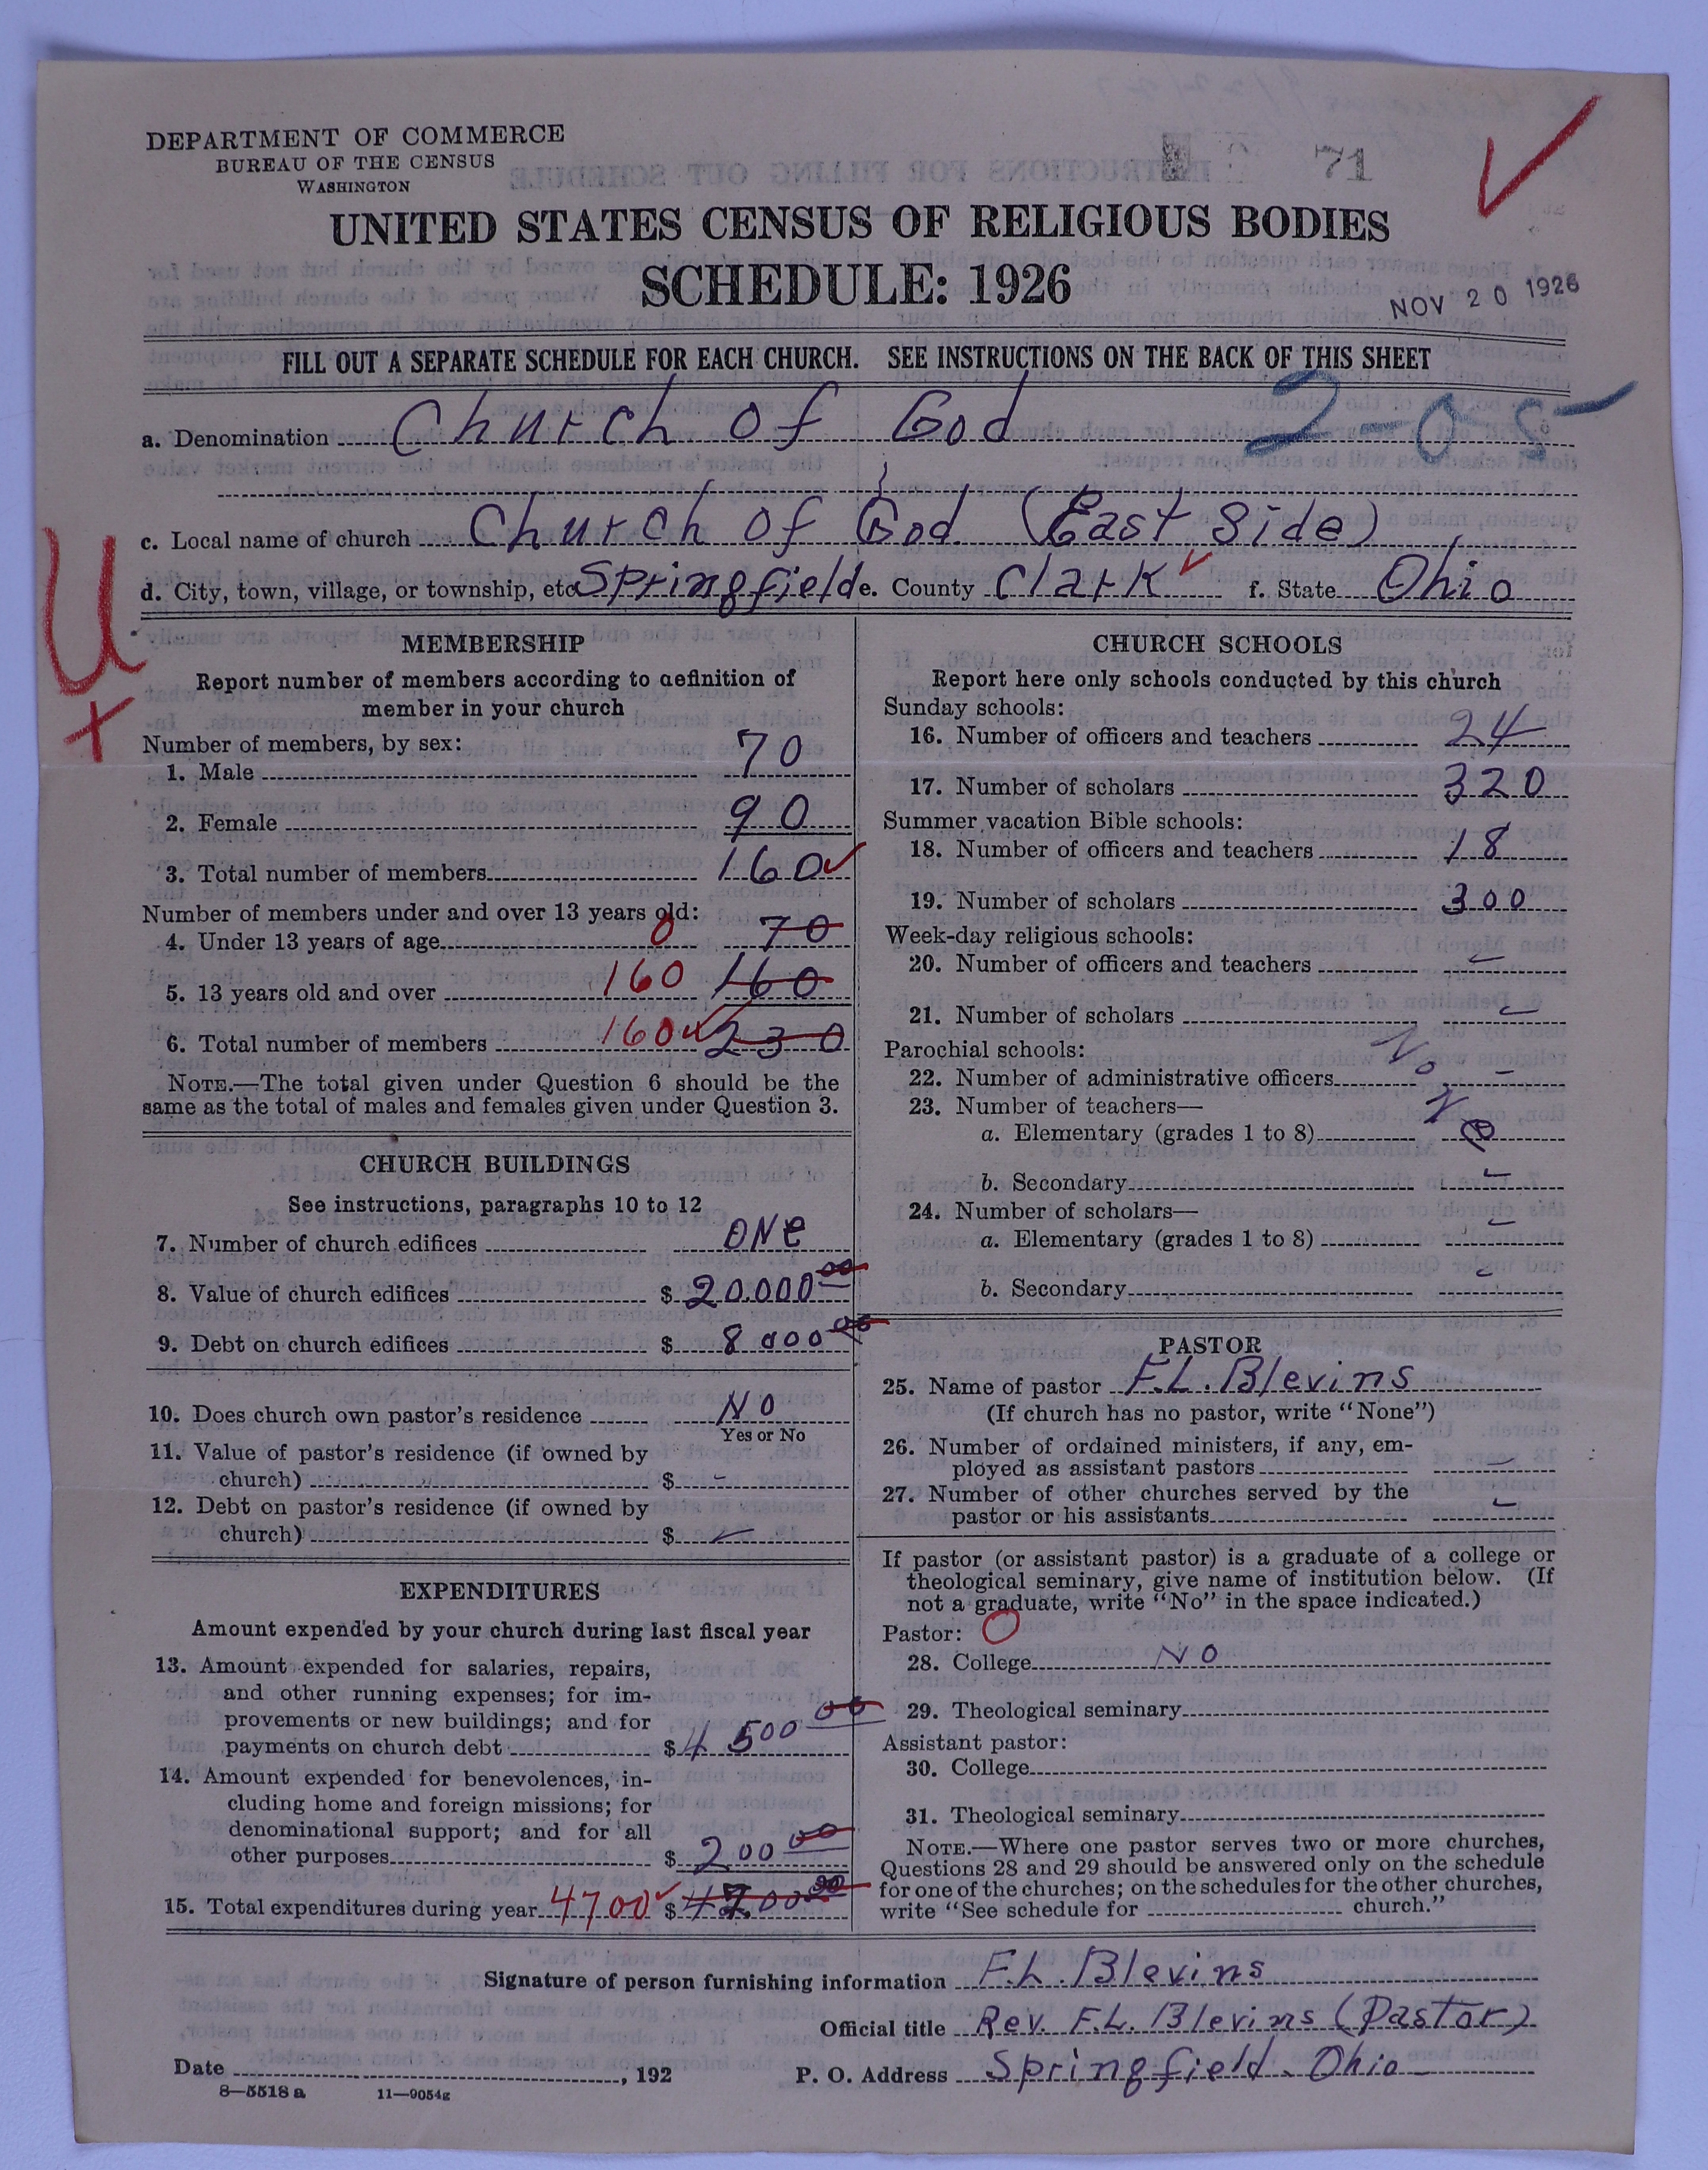 DEPARTMENT OF COMMERCE
BUREAU OF THE CENSUS
WASHINGTON
71
UNITED STATES CENSUS OF RELIGIOUS BODIES
SCHEDULE: 1926
NOV 20 1926
FILL OUT A SEPARATE SCHEDULE FOR EACH CHURCH. SEE INSTRUCTIONS ON THE BACK OF THIS SHEET
a. Denomination Church of God 2-0-5
c. Local name of church Church of God (East Side)
d. City, town, village, or township, etc Springfield e. County Clark f. State Ohio
U
+
MEMBERSHIP
Report number of members according to definition of
member in your church
Number of members, by sex:
1. Male 70
2. Female 90
3. Total number of members 160
Number of members under and over 13 years old:
4. Under 13 years of age 0 70
5. 13 years old and over 160 160
6. Total number of members 160 230
NOTE.—The total given under Question 6 should be the
same as the total of males and females given under Question 3.
CHURCH BUILDINGS
See instructions, paragraphs 10 to 12
7. Number of church edifices ONe
8. Value of church edifices $ 20.000 00
9. Debt on church edifices $ 8 000 00
10. Does church own pastor's residence NO
Yes or No
11. Value of pastor's residence (if owned by
church) $ -
12. Debt on pastor's residence (if owned by
church) $
EXPENDITURES
Amount expended by your church during last fiscal year
13. Amount expended for salaries, repairs,
and other running expenses; for im-
provements or new buildings; and for
payments on church debt $ 4 500 00
14. Amount expended for benevolences, in-
cluding home and foreign missions; for
denominational support; and for all
other purposes $ 200 00
15. Total expenditures during year 4700 $ 4700 00
CHURCH SCHOOLS
Report here only schools conducted by this church
Sunday schools:
16. Number of officers and teachers 24
17. Number of scholars 320
Summer vacation Bible schools:
18. Number of officers and teachers 18
19. Number of scholars 300
Week-day religious schools:
20. Number of officers and teachers -
21. Number of scholars -
Parochial schools: No
22. Number of administrative officers -
23. Number of teachers—
a. Elementary (grades 1 to 8)
b. Secondary -
24. Number of scholars—
a. Elementary (grades 1 to 8) -
b. Secondary -
PASTOR
25. Name of pastor F.L. Blevins
(If church has no pastor, write "None")
26. Number of ordained ministers, if any, em-
ployed as assistant pastors -
27. Number of other churches served by the
pastor or his assistants -
If pastor (or assistant pastor) is a graduate of a college or
theological seminary, give name of institution below. (If
not a graduate, write "No" in the space indicated.)
Pastor: O
28. College NO
29. Theological seminary
Assistant pastor:
30. College
31. Theological seminary
NOTE.—Where one pastor serves two or more churches,
Questions 28 and 29 should be answered only on the schedule
for one of the churches; on the schedules for the other churches,
write "See schedule for church."
Signature of person furnishing information F.L. Blevins
Official title Rev. F.L. Blevins (Pastor)
Date , 192 P. O. Address Springfield. Ohio
8—5518 a 11—9054g